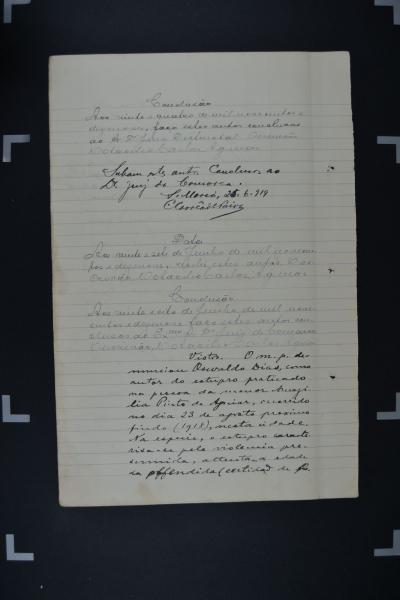 Conclusão
Aos vinte e quatro de mil novecentos e
dezenove, faço estes autos conclusos
ao Sr. Dr. Juiz Districtal. Escrivão
Octacilio Carlos Aguiar
Subam estes autos Conclusos ao
Dr. Juiz de Comarca.
26-6-919
Data
Aos vinte e sete de Junho de mil novecen-
tos e dezenove, recebi estes autos. O es-
crivão, Octacilio Carlos Aguiar
Conclusão
Aos vinte e oito de Junho de mil nove-
centos e dezenove faço estes autos con-
clusos ao Exmo. Sr. Dr. Juiz de Comarca
O escrivão, Octacilio Carlos Aguiar
Vistos. O m. p. de-
nunciou Oswaldo Dias, como
autor do estupro praticado
na pessoa da menor
Pinto de Aguiar, ocorrido
no dia 23 de agosto proximo
findo (1918), nesta cidade.
Na especie, o estupro caracte-
risa-se pela violencia pre-
sumida, attenta a edade
da offendida (certidão de